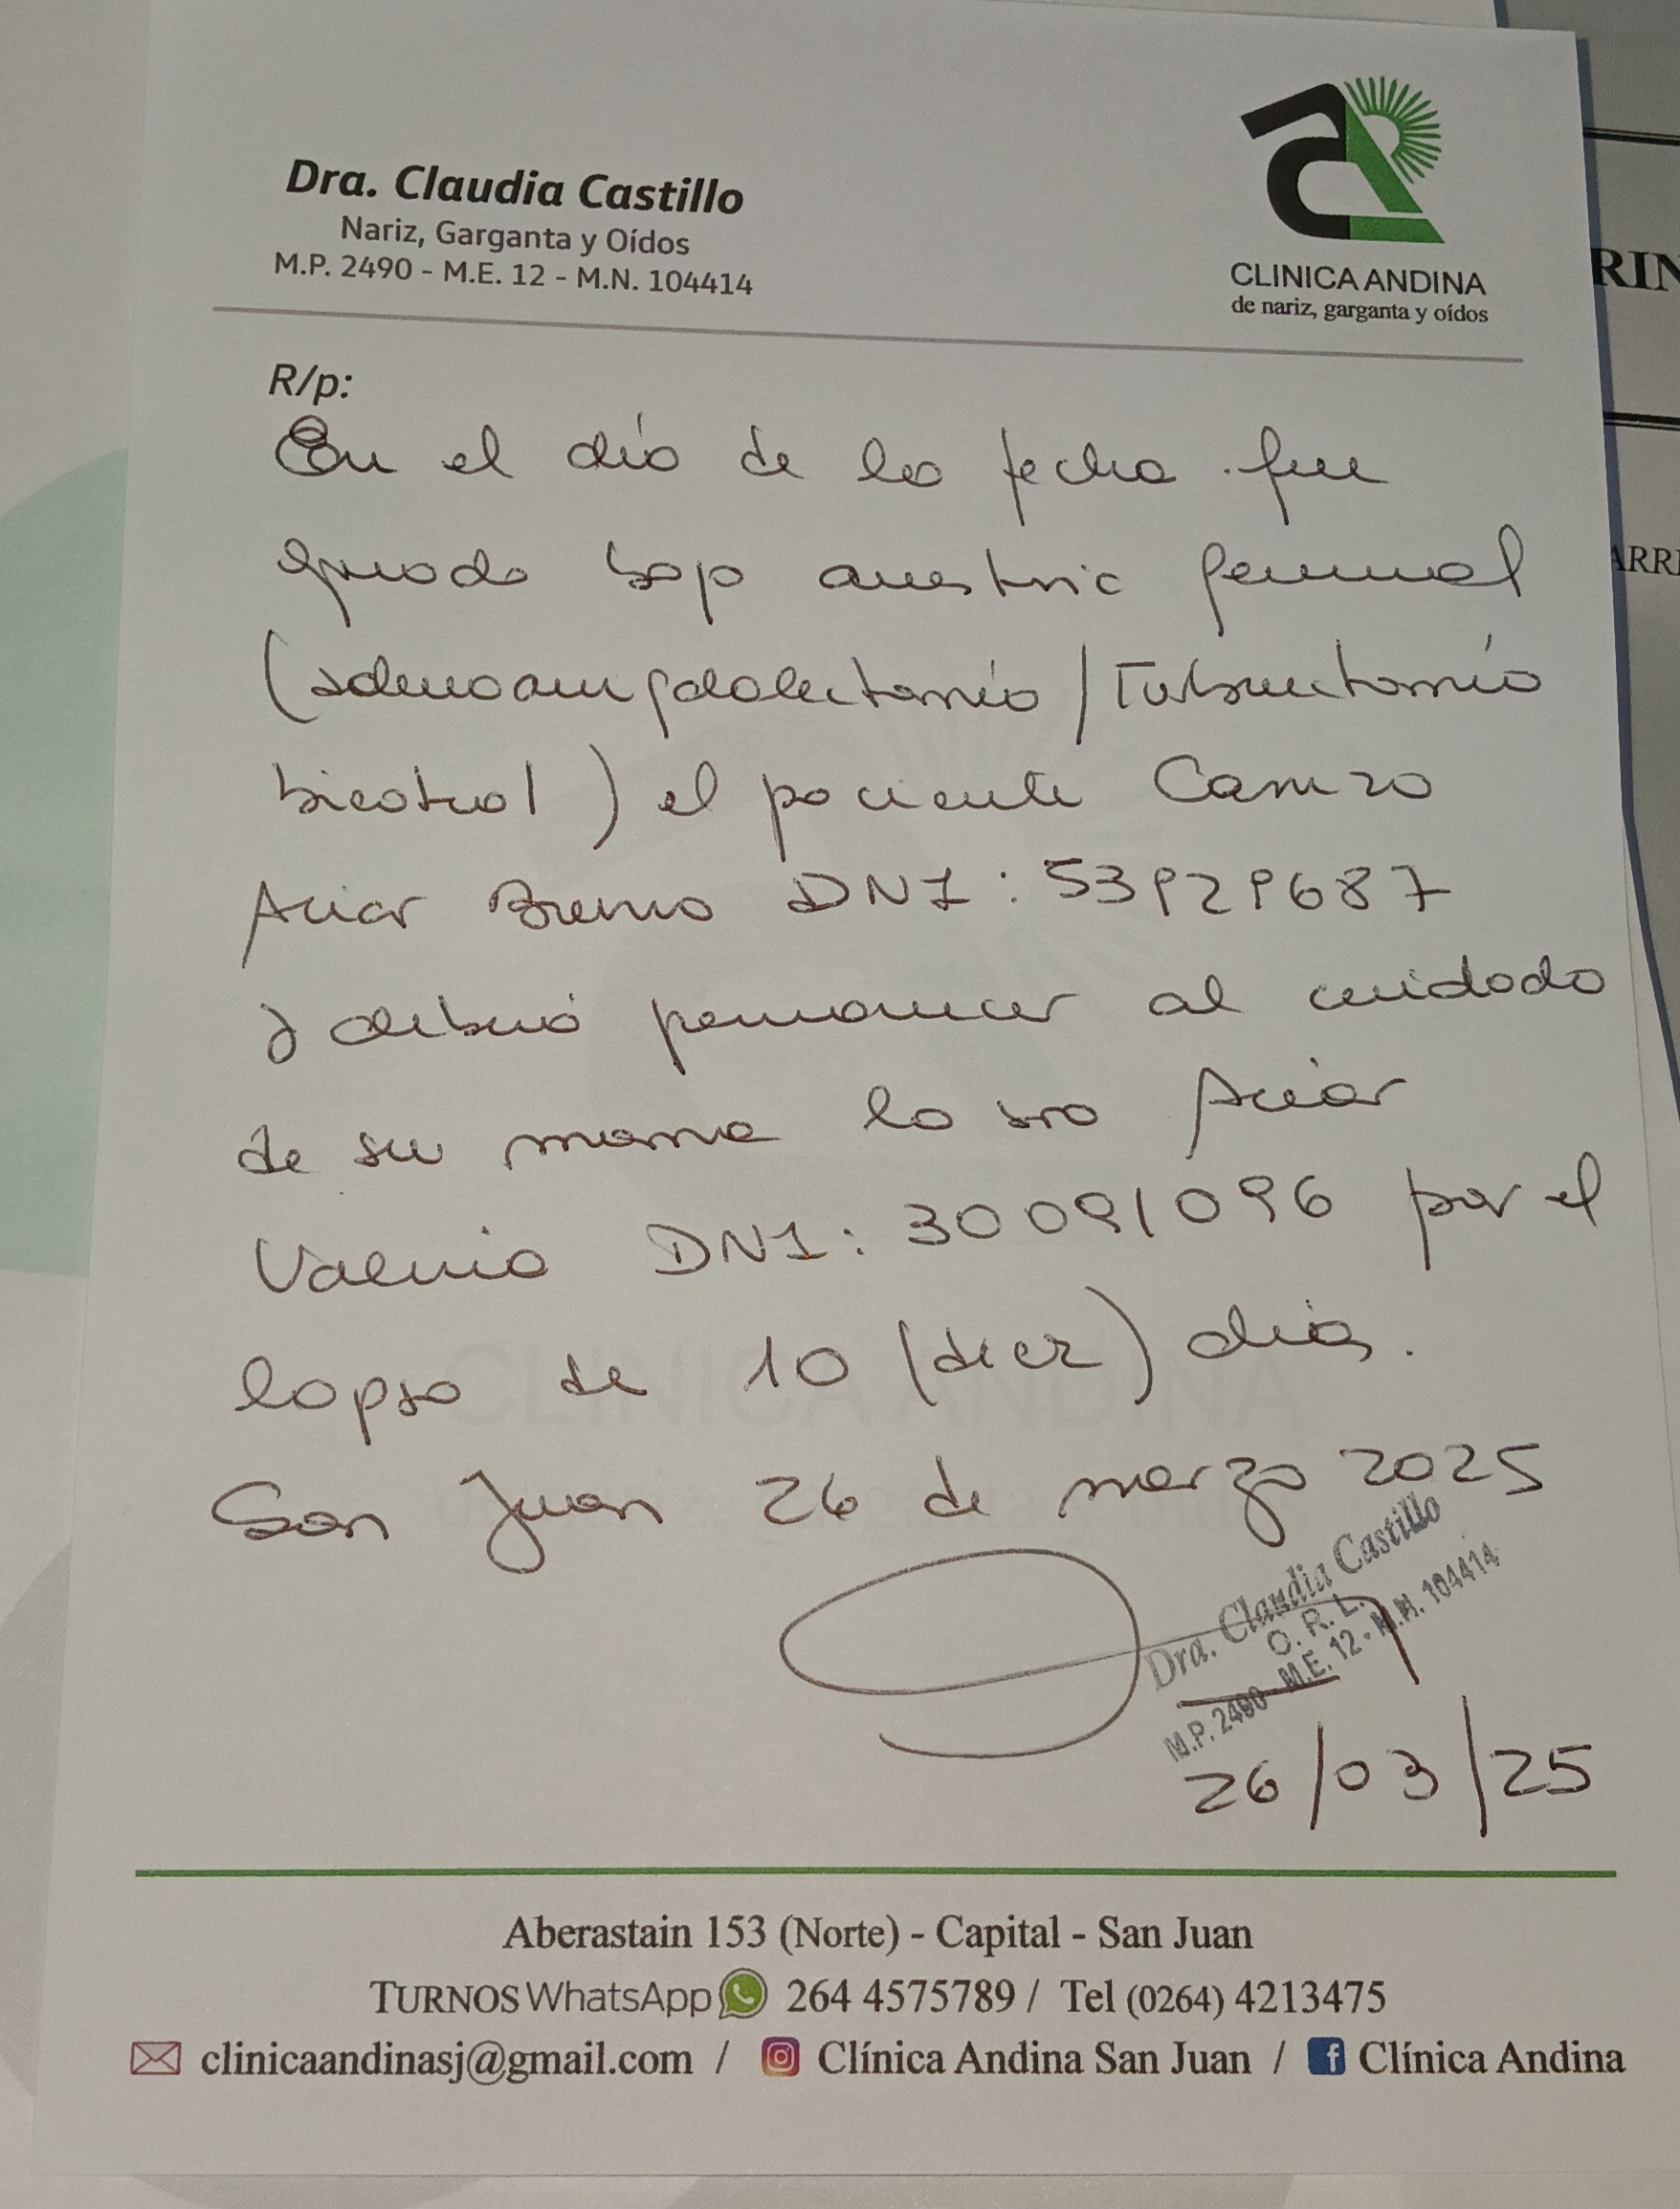 Dra. Claudia Castillo
Nariz, Garganta y Oídos
M.P. 2490 - M.E. 12 - M.N. 104414
CLINICA ANDINA
de nariz, garganta y oídos
RIN
ARRI
R/p:
En el día de la fecha fue
operado bajo anestesia general
(adenoamigdalectomía / Turbinectomía
bilateral) el paciente
Aciar Bruno DNI: 53929687
y deberá permanecer al cuidado
de su mama la sra Aciar
Valeria DNI: 30091096 por el
lapso de 10 (diez) días.
San Juan 26 de marzo 2025
Dra. Claudia Castillo
O. R. L.
M.P. 2490 - M.E. 12 - M.N. 104414
26/03/25
CLINICA ANDINA
Aberastain 153 (Norte) - Capital - San Juan
TURNOS WhatsApp 264 4575789 / Tel (0264) 4213475
clinicaandinasj@gmail.com / Clínica Andina San Juan / Clínica Andina